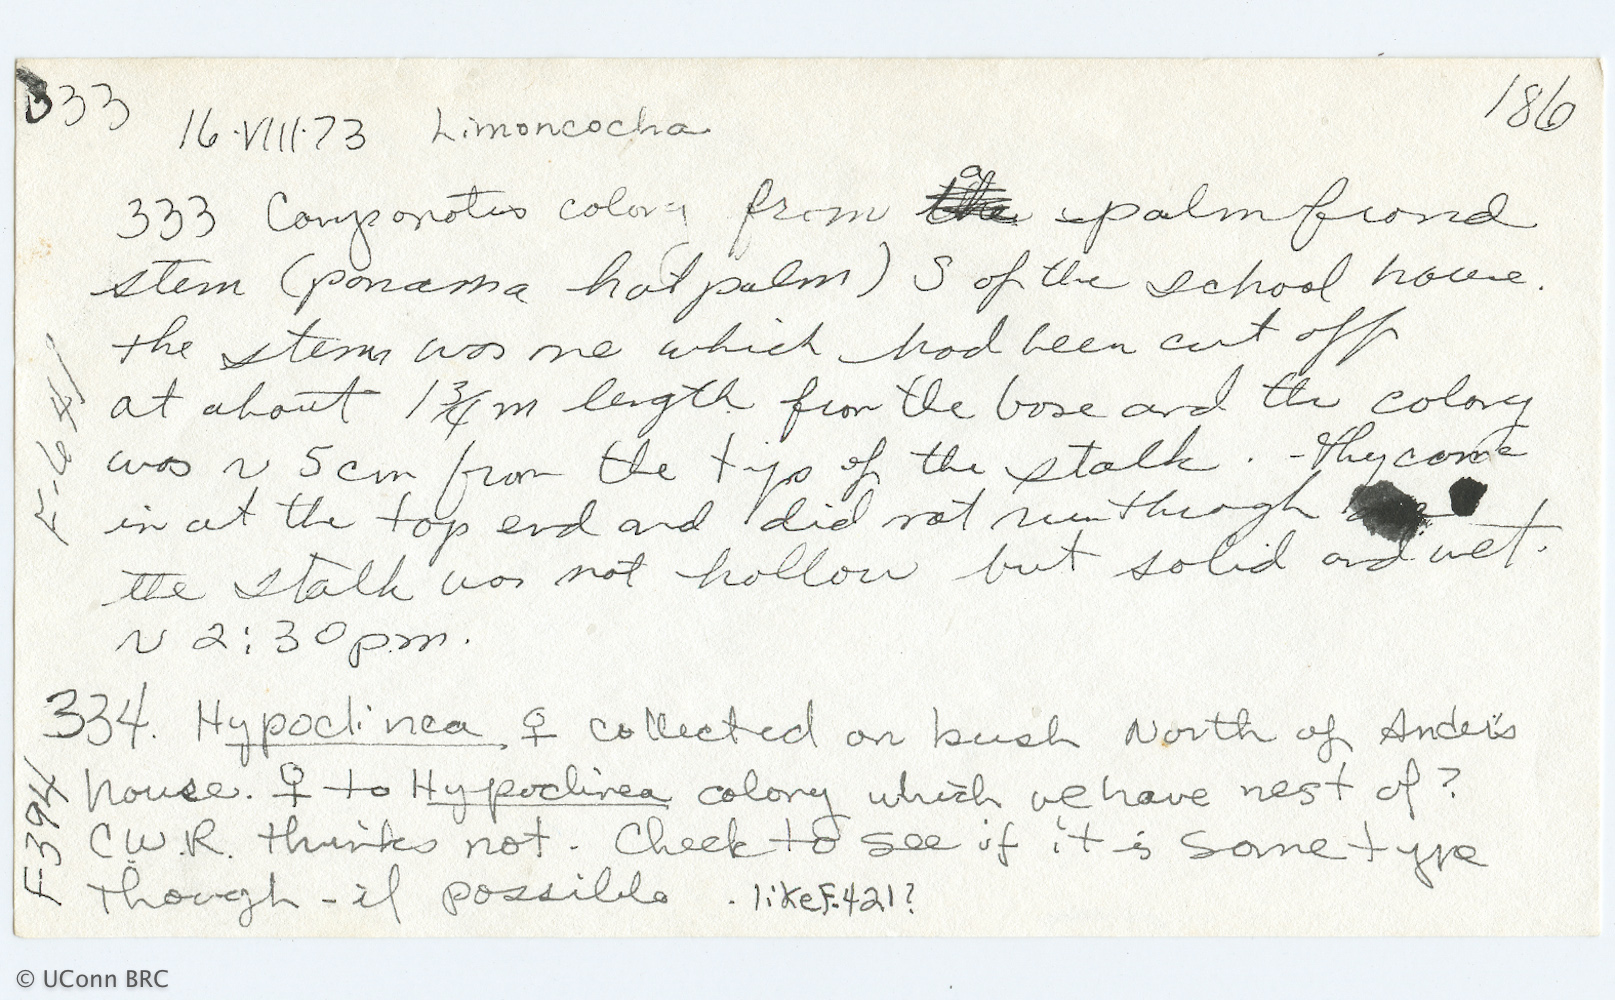 333
186
16·VIII·73 Limoncocha
333 Camponotus colony from a palm frond
stem (panama hat palm) S of the school house.
the stem was one which had been cut off
at about 1 3/4 m length from the base and the colony
was ~ 5 cm from the tip of the stalk. - They came
in at the top end and did not run through
the stalk was not hollow but solid and wet.
~ 2:30 pm.
F-641
334. Hypoclinea ♀ collected on bush North of Ander's
house. ♀ to Hypoclinea colony which we have nest of?
C.W.R. thinks not. Check to see if it is same type
though - if possible. like F.421?
F394
© UConn BRC